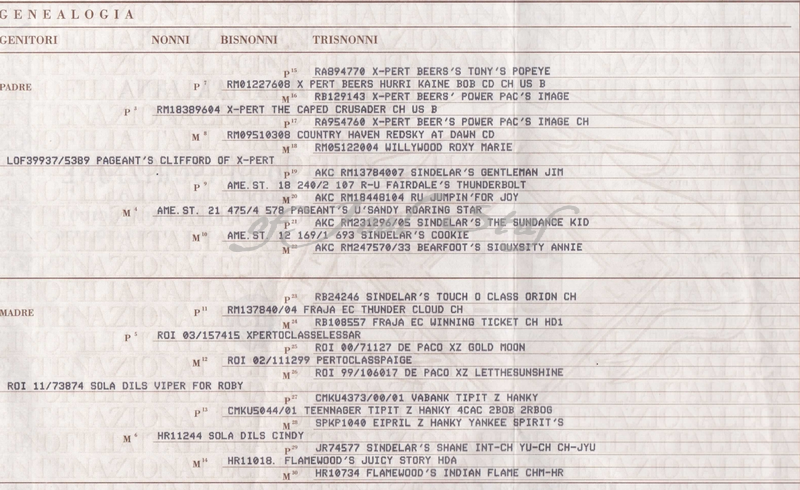 GENEALOGIA
GENITORI NONNI BISNONNI TRISNONNI
P 15 RA894770 X-PERT BEERS'S TONY'S POPEYE
PADRE P 7 RM01227608 X PERT BEERS HURRI KAINE BOB CD CH US B
M 16 RB129143 X-PERT BEERS' POWER PAC'S IMAGE
P 3 RM18389604 X-PERT THE CAPED CRUSADER CH US B
P 17 RA954760 X-PERT BEER'S POWER PAC'S IMAGE CH
M 8 RM09510308 COUNTRY HAVEN REDSKY AT DAWN CD
M 18 RM05122004 WILLYWOOD ROXY MARIE
LOF39937/5389 PAGEANT'S CLIFFORD OF X-PERT
P 19 AKC RM13784007 SINDELAR'S GENTLEMAN JIM
P 9 AME.ST. 18 240/2 107 R-U FAIRDALE'S THUNDERBOLT
M 20 AKC RM18448104 RU JUMPIN'FOR JOY
M 4 AME.ST. 21 475/4 578 PAGEANT'S U'SANDY ROARING STAR
P 21 AKC RM231296/05 SINDELAR'S THE SUNDANCE KID
M 10 AME.ST. 12 169/1 693 SINDELAR'S COOKIE
M AKC RM247570/33 BEARFOOT'S SIOUXSITY ANNIE
P 23 RB24246 SINDELAR'S TOUCH O CLASS ORION CH
MADRE P 11 RM137840/04 FRAJA EC THUNDER CLOUD CH
M 24 RB108557 FRAJA EC WINNING TICKET CH HD1
P 5 ROI 03/157415 XPERTOCLASSELESSAR
P 25 ROI 00/71127 DE PACO XZ GOLD MOON
M 12 ROI 02/111299 PERTOCLASSPAIGE
M 26 ROI 99/106017 DE PACO XZ LETTHESUNSHINE
ROI 11/73874 SOLA DILS VIPER FOR ROBY
P 27 CMKU4373/00/01 VABANK TIPIT Z HANKY
P 13 CMKU5044/01 TEENNAGER TIPIT Z HANKY 4CAC 2BOB 2RBOG
M 28 SPKP1040 EIPRIL Z HANKY YANKEE SPIRIT'S
M 6 HR11244 SOLA DILS CINDY
P 29 JR74577 SINDELAR'S SHANE INT-CH YU-CH CH-JYU
M 14 HR11018. FLAMEWOOD'S JUICY STORY HDA
M 30 HR10734 FLAMEWOOD'S INDIAN FLAME CHM-HR